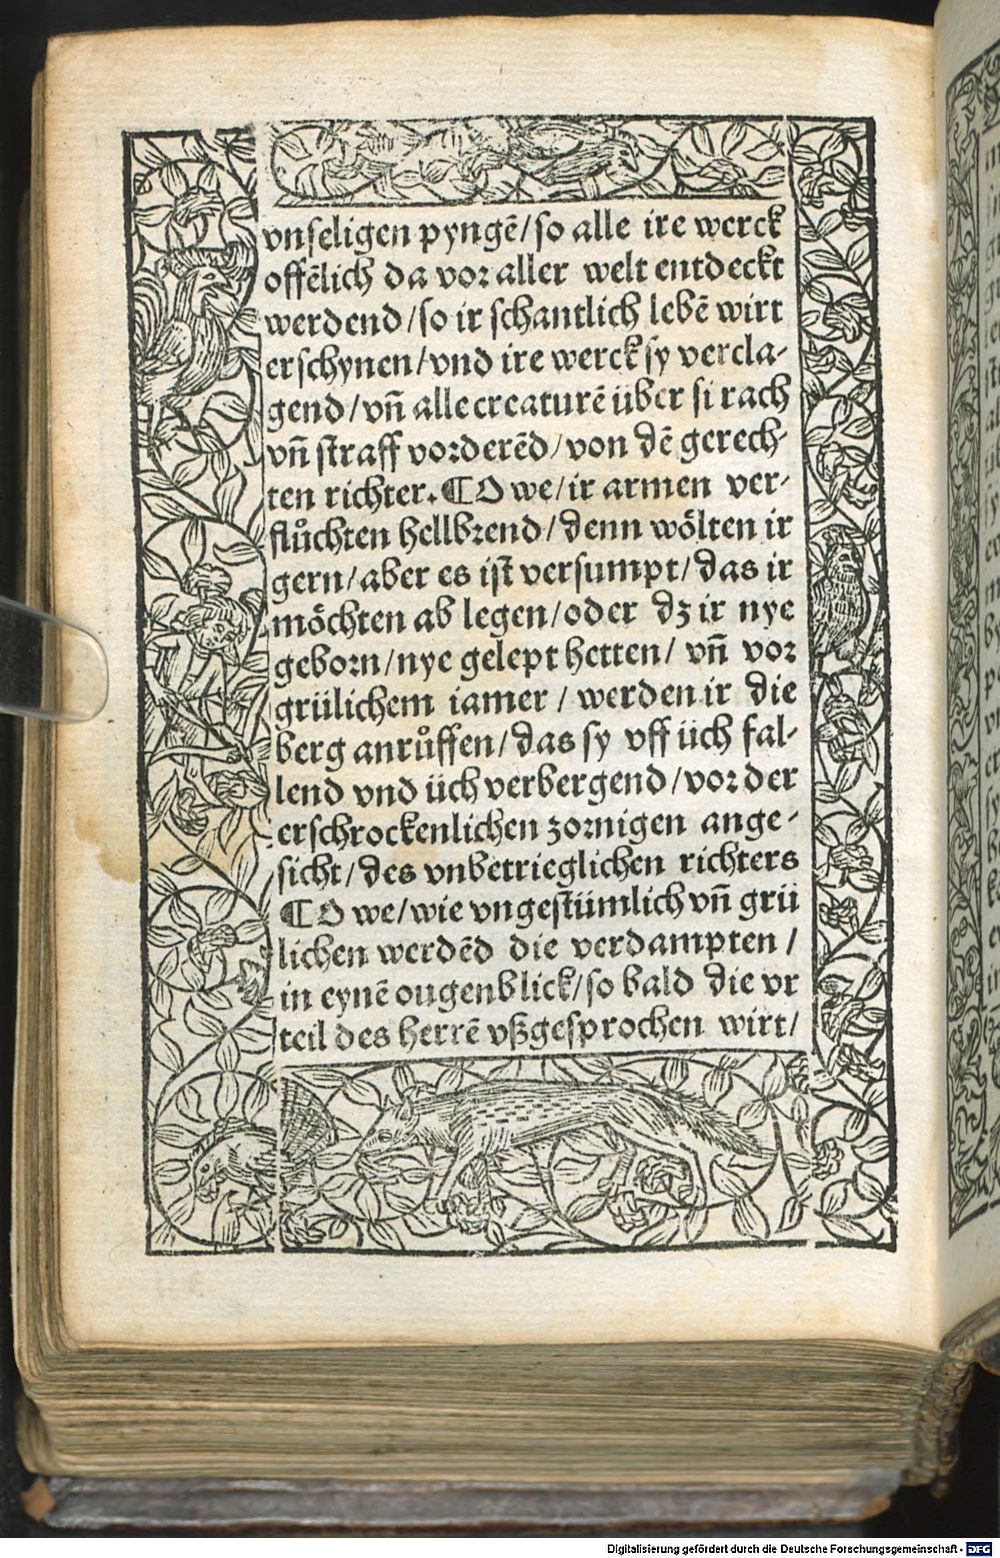 vnseligen pyngē/so alle ire werck
offēlich da vor aller welt entdeckt
werdend/so ir schantlich lebē wirt
erschynen/vnd ire werck sy vercla-
gend/vñ alle creaturē über si rach
vñ straff vorderēd/von dē gerech-
ten richter. ¶O we/ir armen ver-
flůchten hellbrend/denn wölten ir
gern/aber es ist versumpt/das ir
möchten ab legen/oder dz ir nye
geborn/nye gelept hetten/ vñ vor
grülichem iamer / werden ir die
berg anrůffen/das sy vff üch fal-
lend vnd üch verbergend/vor der
erschrockenlichen zornigen ange-
sicht/des vnbetrieglichen richters
¶O we/wie vngestümlich vñ grü
lichen werdēd die verdampten /
in eynē ougenblick/so bald die vr
teil des herrē vßgesprochen wirt/
Digitalisierung gefördert durch die Deutsche Forschungsgemeinschaft - DFG